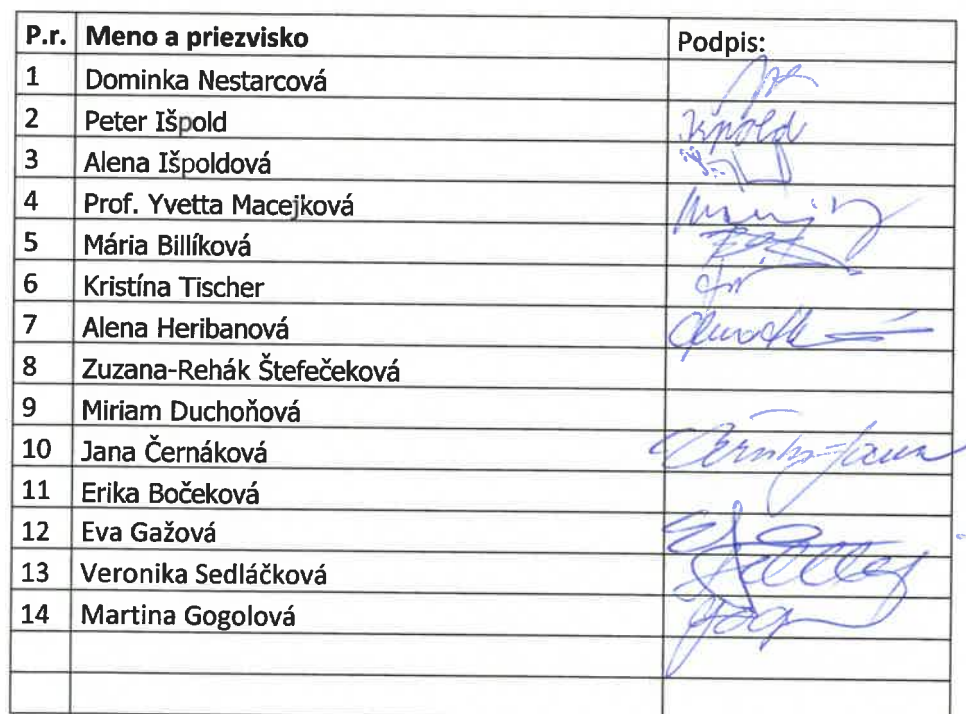 P.r. Meno a priezvisko Podpis:
1 Dominka Nestarcová
2 Peter Išpold Išpold
3 Alena Išpoldová
4 Prof. Yvetta Macejková
5 Mária Billíková
6 Kristína Tischer
7 Alena Heribanová
8 Zuzana-Rehák Štefečeková
9 Miriam Duchoňová
10 Jana Černáková
11 Erika Bočeková
12 Eva Gažová
13 Veronika Sedláčková
14 Martina Gogolová